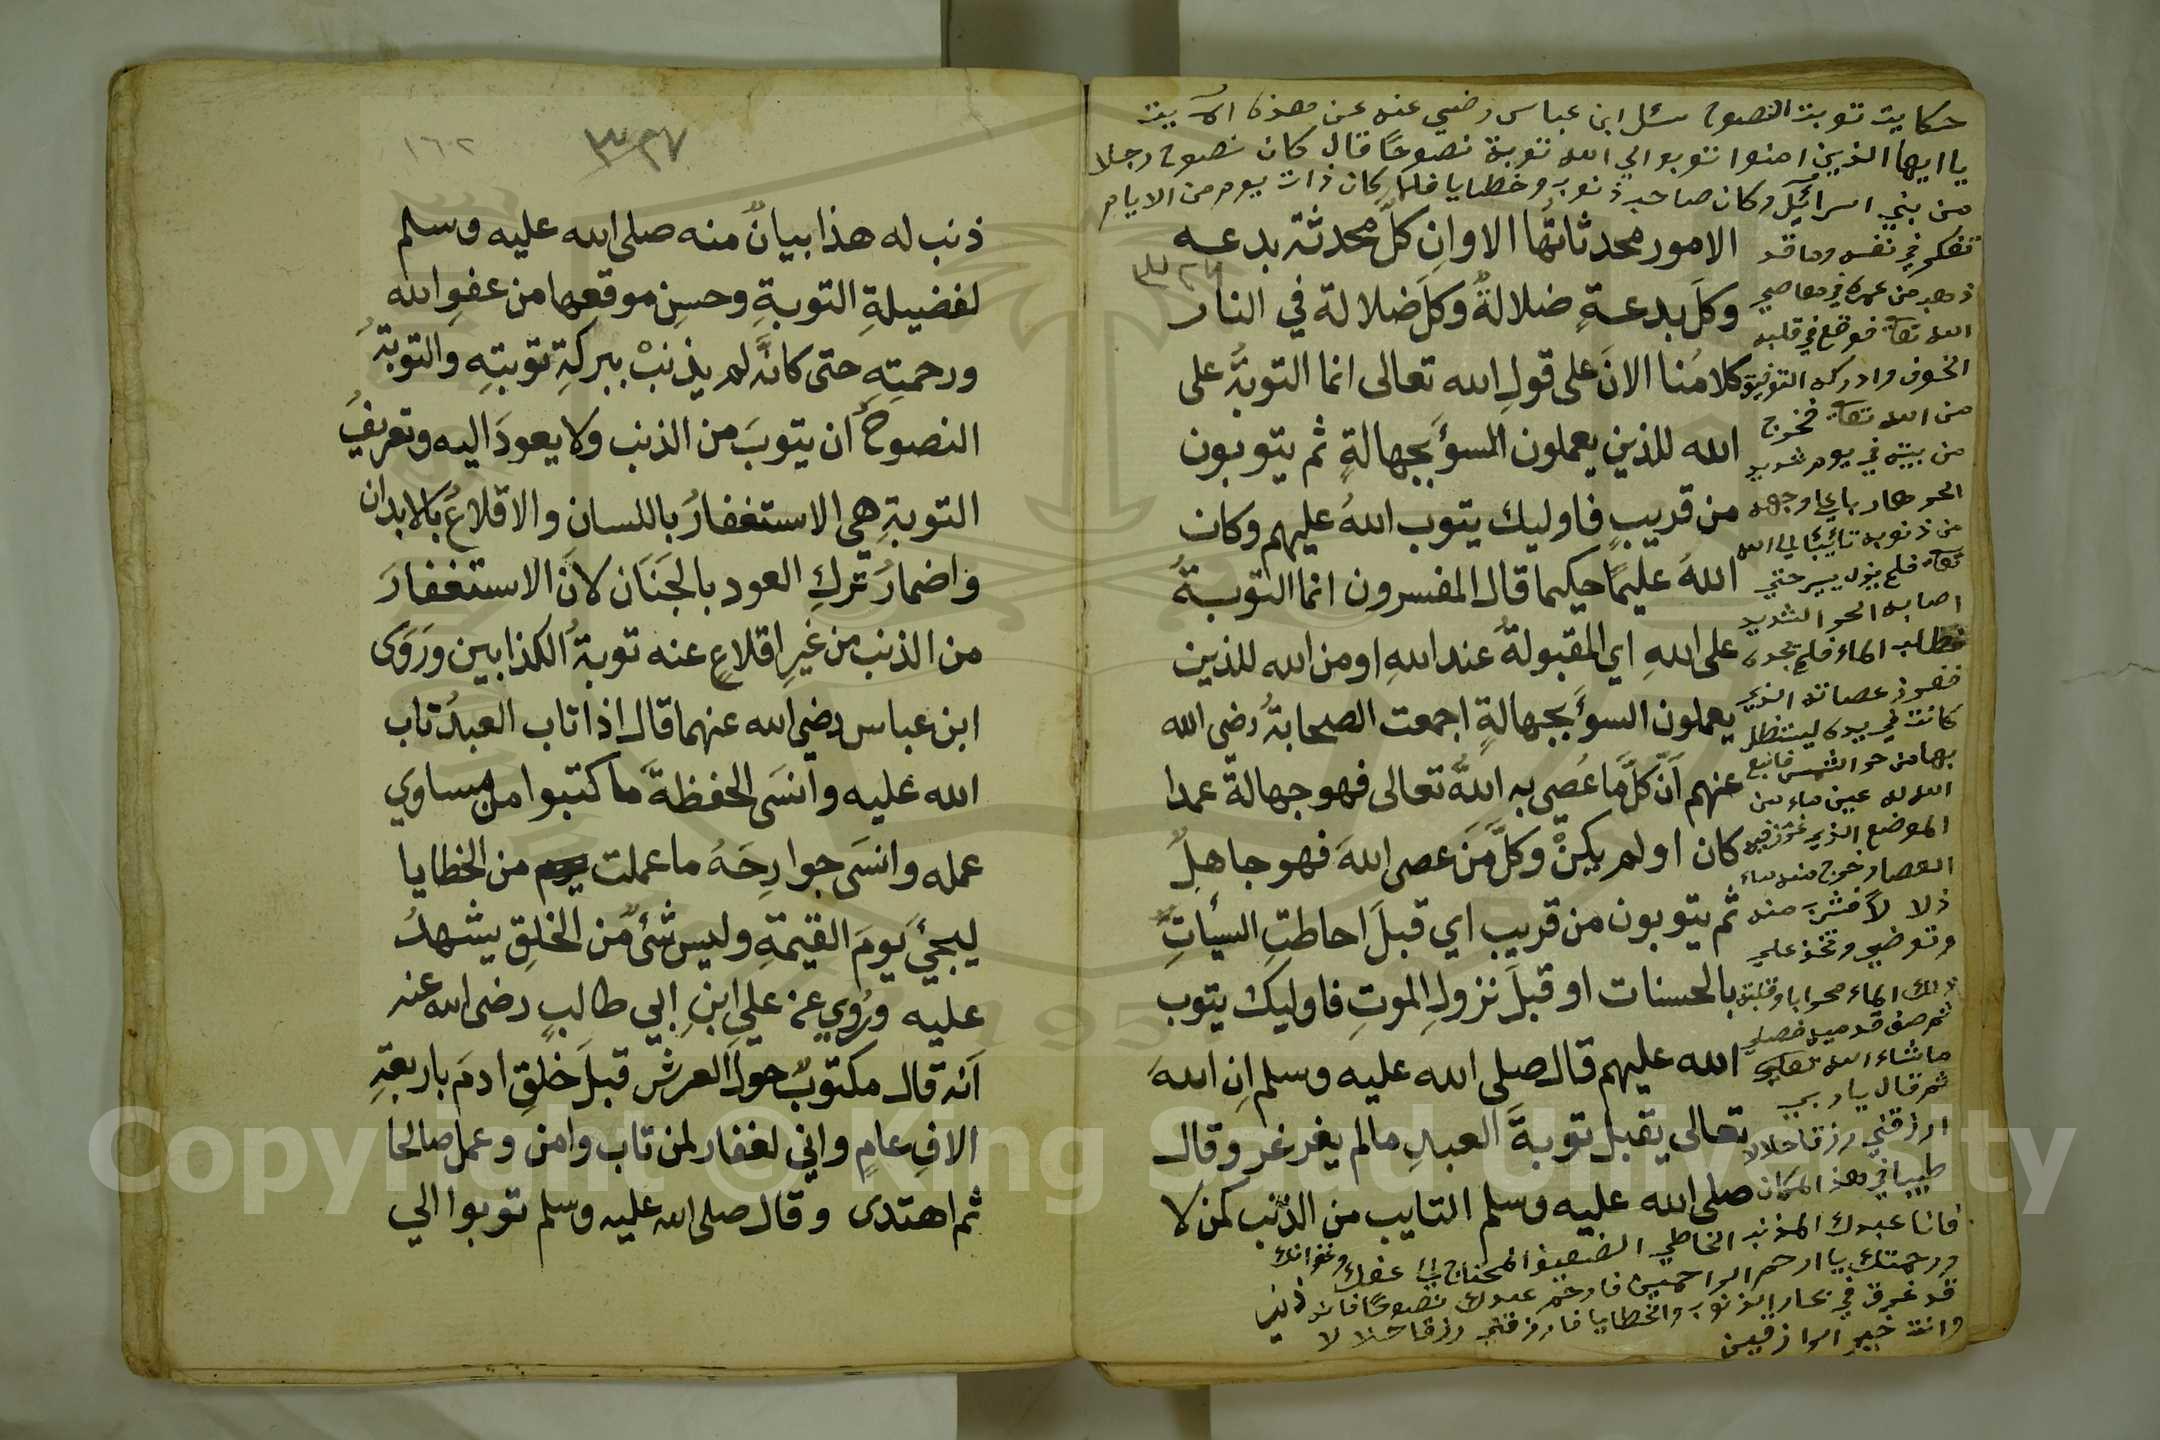 حكايت توبت النصوح سئل ابن عباس رضي عنه عن هذه الآيت
يا ايها الذين امنوا توبوا الي الله توبة نصوحًا قال كان نصوح رجلا
من بني اسرائيل وكان صاحب ذنوب وخطايا فلما كان ذات يوم من الايام
تفكر في نفسه وما قد
ذهب من عمره في معاصي
الله تعا فوقع في قلبه
الخوف وادركه التوفيق
من الله تعا فخرج
من بيته في يوم شديد
الحر هاربا علي وجهه
من ذنوبه تائبًا الي الله
تعا فلم يزل يسير حتي
اصابه الحر الشديد
فطلب الماء فلم يجده
فغرز عصاته الذي
كانت في يده ليستظل
بها من حر الشمس فانبع
الله له عين ماء من
الموضع الذي غرز فيه
العصا وخرج منه ماء
زلا لاً فشرب منه
وتوضي واتخذ علي
ذلك الماء محرابا وقبلة
ثم صف قدميه فصلي
ماشاء الله تعالي
ثم قال يا ربي
ارزقني رزقا حلالا
طيبا في هذا المكان
فانا عبدك المذنب الخاطي الضعيف المحتاج الي عفوك وغفرانك
ورحمتك يا ارحم الراحمين فارحم عبدك نصوحًا فانه
قد غرق في بحار الذنوب والخطايا فارزقني رزقا حلالا
وانت خير الرازقين
الامور محدثاتُها الا وان كلَّ محدثة بدعه
٣٢٧
وكلَ بدعةٍ ضلالةٌ وكلَ ضلالة في النار
كلامُنا الانَ على قولِ الله تعالى انما التوبةُ على
الله للذين يعملون السؤَ بجهالةٍ ثم يتوبون
من قريبٍ فاوليك يتوب اللهُ عليهم وكان
اللهُ عليمًا حكيما قال المفسرون انما التوبةُ
على اللهِ اي المقبولةُ عند اللهِ او من الله للذين
يعملون السؤَ بجهالةٍ اجمعت الصحابةُ رضي الله
عنهم اَنّ كلَّ ما عُصي به اللهُ تعالى فهو جهالةٌ عمدا
كان او لم يكنْ وكلَّ مَنَ عصى اللهَ فهو جاهلٌ
ثم يتوبون من قريب اي قبلَ احاطتِ السيأتِ
بالحسنات او قبلَ نزولِ الموتِ فاوليك يتوب
الله عليهم قال صلى الله عليه وسلم اِن اللهَ
تعالى يقبل توبةَ العبدِ مالم يغرغر وقال
صلى الله عليه وسلم التايب من الذنب كمن لا
٣٢٧
١٦٢
ذنب له هذا بيانٌ منه صلى الله عليه وسلم
لفضيلةِ التوبةِ وحسنِ موقعها من عفوِ الله
ورحمتِهِ حتى كانّه لم يذنبْ ببركةِ توبتِهِ والتوبةُ
النصوحُ ان يتوبَ من الذنب ولا يعودَ اليه وتعريفُ
التوبةِ هي الاستغفارُ باللسان والاقلاعُ بالابدان
واضمارُ تركِ العود بالجَنَان لانَ الاستغفارَ
من الذنب من غيرِ اقلاعٍ عنه توبةُ الكذابين ورَوَى
ابن عباس رضي الله عنهما قال اذا تاب العبدُ تاب
الله عليه وانسَى الحفظةَ ما كتبوا من مساوي
عمله وانسَى جوارِحَهُ ما عملت من الخطايا
ليجئَ يَومَ القيمةِ وليس شئٌ من الخلقِ يشهدُ
عليه ورُوي عن علي ابنِ ابي طالبٍ رضي الله عنه
اَنه قال مكتوبٌ حولَ العرشِ قبلَ خلقِ ادمَ باربعةِ
الافِ عامٍ واني لغفار لمن تاب وامن وعمل صالحا
ثم اهتدى وقال صلى الله عليه وسلم توبوا الي
Copyright © King Saud University